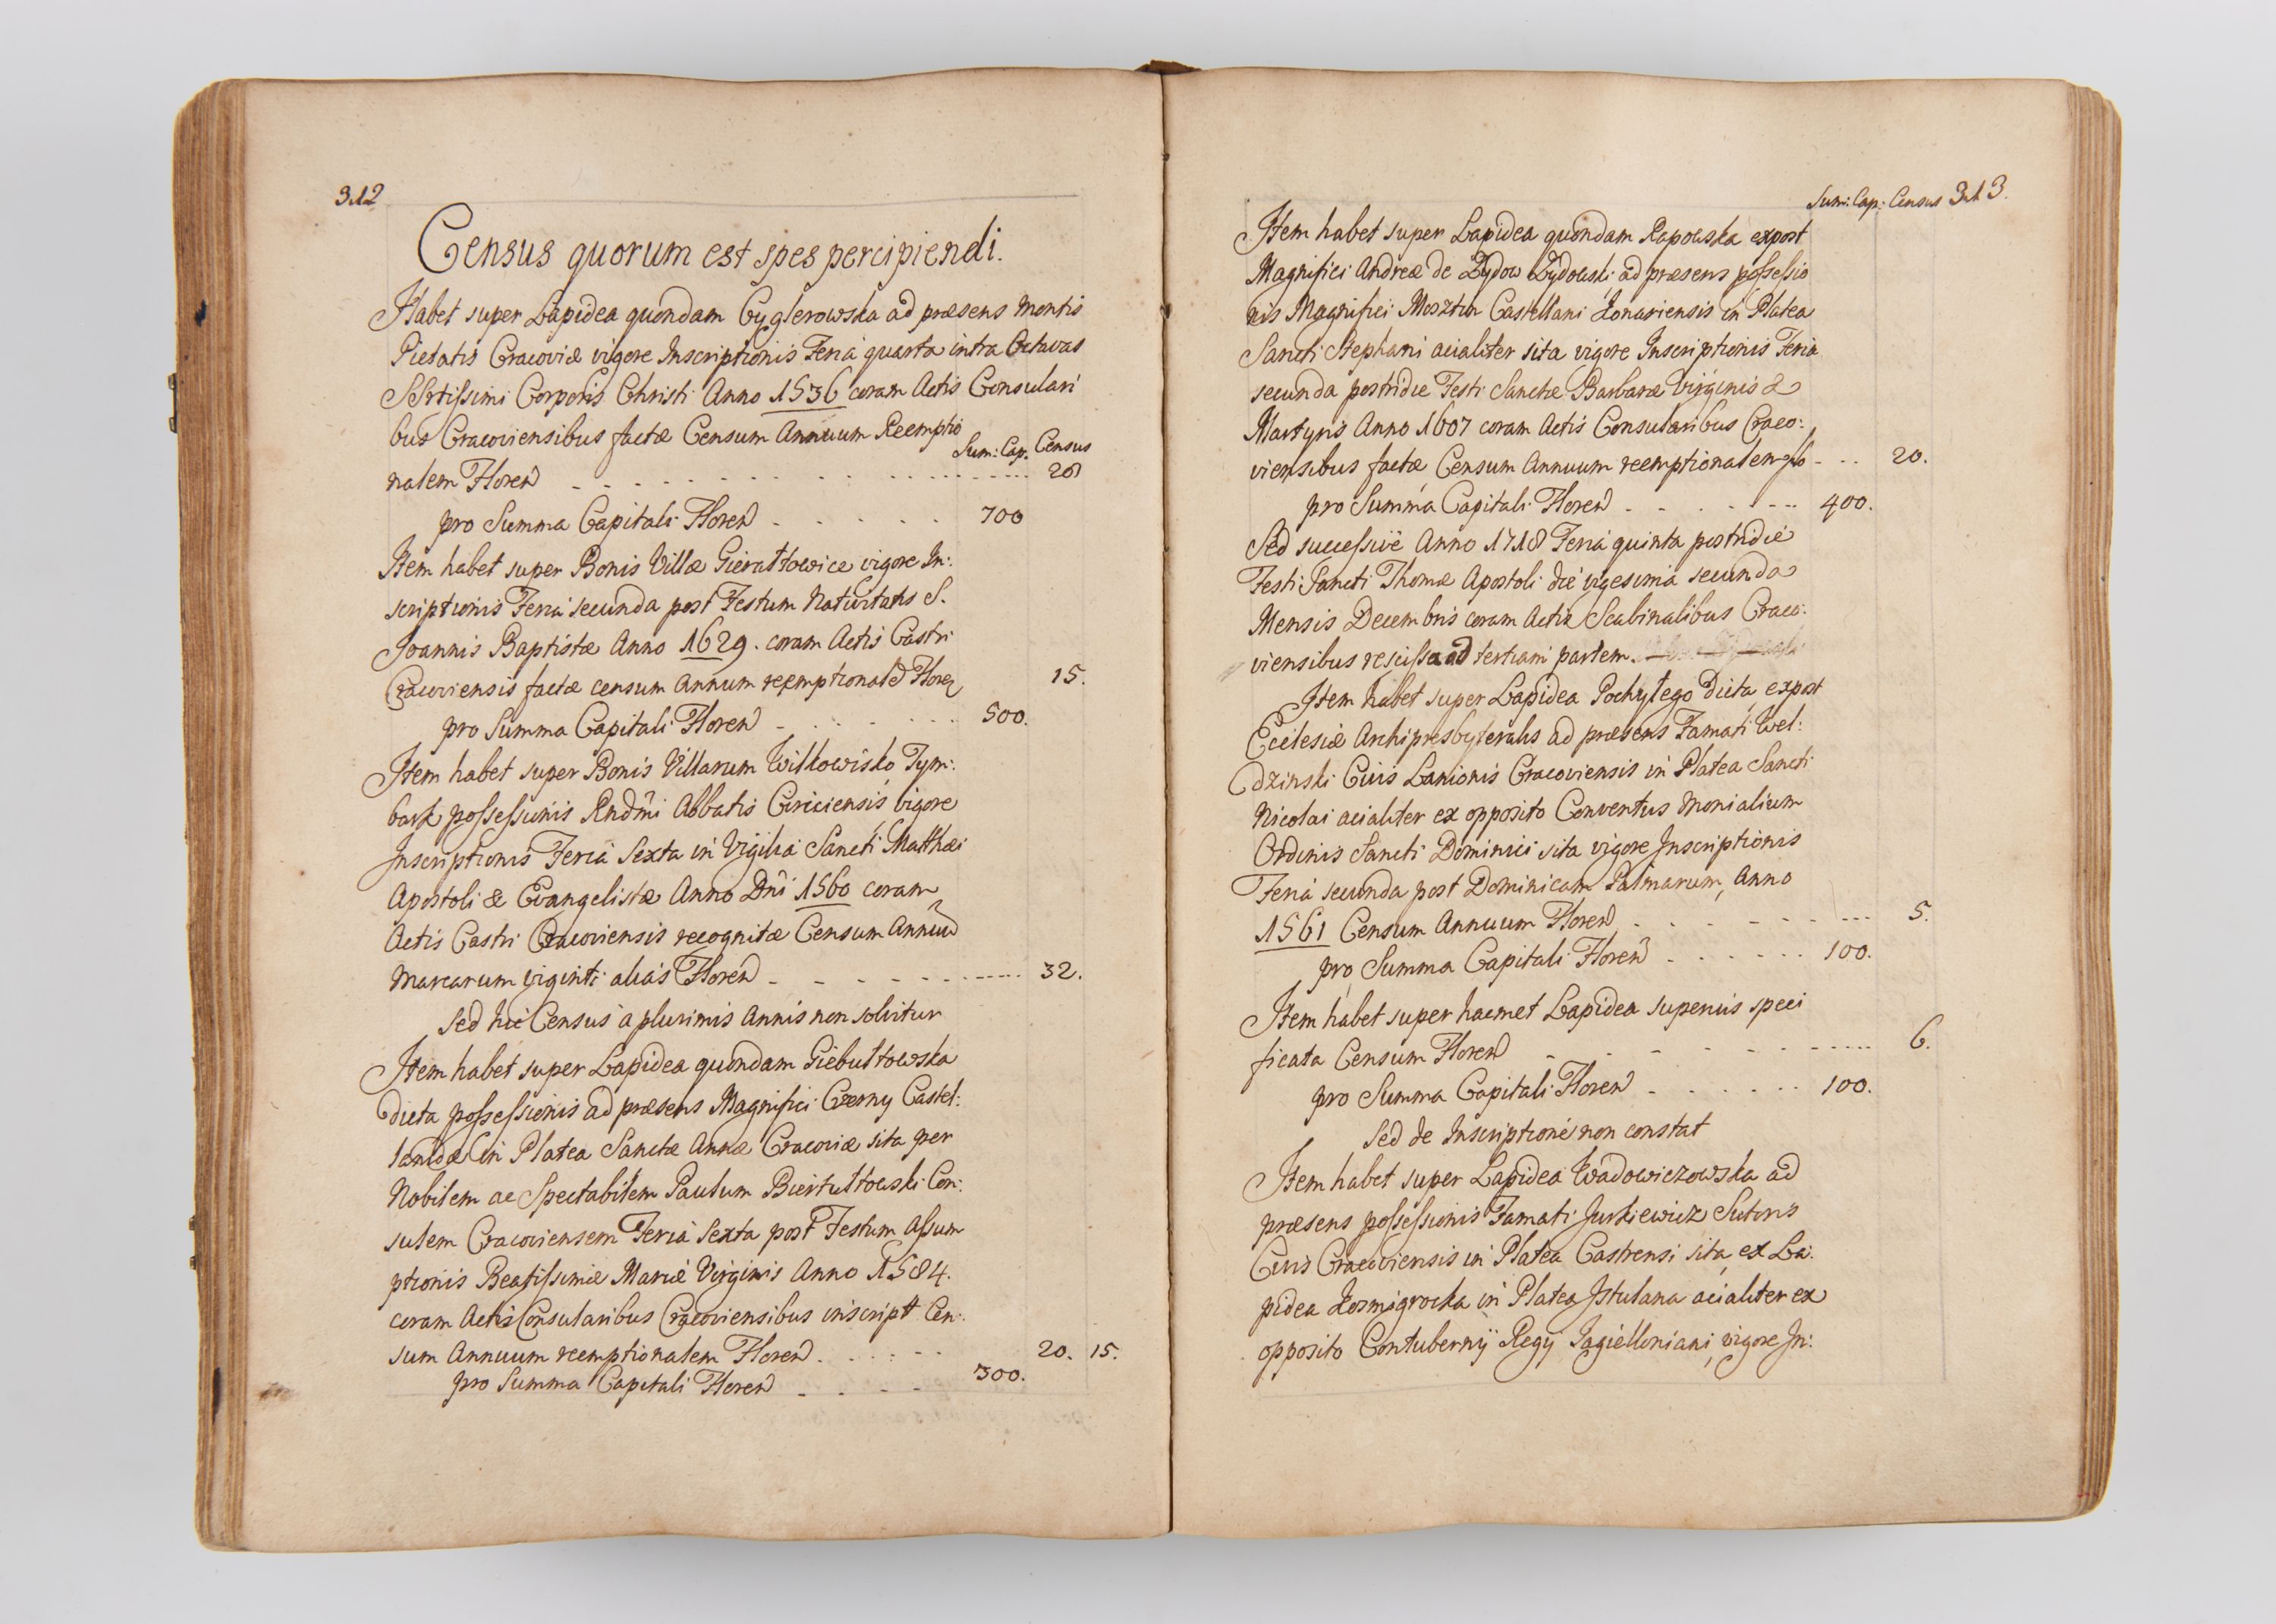 312
Census quorum est spes percipiendi.
Habet super Lapidea quondam Cyglerowska ad præsens Montis
Pietatis Cracoviæ vigore Inscriptionis Feria quarta intra Octavas
SSrtissimi Corporis Christi Anno 1536 coram Actis Consulari
bus Cracoviensibus factæ Censum Annuum Reemptio
Sum: Cap. Census
nalem Floren 28
pro Summa Capitali Floren 700
Item habet super Bonis Villæ Gierałtowice vigore In:
scriptionis Feria secunda post Festum Nativitatis S.
Joannis Baptistæ Anno 1629. coram Actis Castri
Cracoviensis factæ censum Annum reemptionale Floren 15.
pro Summa Capitali Floren 500.
Item habet super Bonis Villarum Wilkowisko, Tym:
bark possessionis Rndmi Abbatis Ciriciensis vigore
Inscriptionis Feria Sexta in Vigilia Sancti Matthæi
Apostoli & Evangelistæ Anno Dni 1560 coram
Actis Castri Cracoviensis recognitæ Censum Annuu
Marcarum viginti alias Floren 32.
Sed hic Census a plurimis Annis non solvitur
Item habet super Lapidea quondam Giebułtowska
dicta possessionis ad præsens Magnifici Czerny Castel:
lanidæ in Platea Sanctæ Annæ Cracoviæ sita per
Nobilem ac Spectabilem Paulum Biertułtowski Con:
sulem Cracoviensem Feria Sexta post Festum Assum
ptionis Beatissimæ Mariæ Virginis Anno 1584.
coram Actis Consularibus Cracoviensibus inscript Cen:
sum Annuum reemptionalem Floren 20. 15.
pro Summa Capitali Floren 300.
Sum: Cap: Census 313.
Item habet super Lapidea quondam Rapowska expost
Magnifici Andreæ de Zydow Zydowski ad præsens possessio
nis Magnifici Morsztin Castellani Zonariensis in Platea
Sancti Stephani acialiter sita vigore Inscriptionis Feria
secunda postridie Festi Sanctæ Barbaræ Virginis &
Martyris Anno 1607 coram Actis Consularibus Craco:
viensibus factæ Censum Annuum reemptionalem flo 20.
pro Summa Capitali Floren 400.
Sed successive Anno 1718 Feria quinta postridie
Festi Sancti Thomæ Apostoli die vigesima secunda
Mensis Decembris coram Actis Scabinalibus Craco:
viensibus rescissa ad tertiam partem.
Item habet super Lapidea Pochyłego dicta, expost
Ecclesiæ Archipresbyteralis ad præsens Famati Wel:
dzinski Civis Lanionis Cracoviensis in Platea Sancti
Nicolai acialiter ex opposito Conventus Monialium
Ordinis Sancti Dominici sita vigore Inscriptionis
Feria secunda post Dominicam Palmarum, Anno
1561 Censum Annuum Floren 5.
pro Summa Capitali Floren 100.
Item habet super hacmet Lapidea superius speci
ficata Censum Floren 6.
pro Summa Capitali Floren 100.
Sed de Inscriptione non constat
Item habet super Lapidea Wadowiczowska ad
præsens possessionis Famati Jurkiewicz Sutoris
Civis Cracoviensis in Platea Castrensi sita, ex La:
pidea Kosmigrocka in Platea Istulana acialiter ex
opposito Contubernij Regij Jagielloniani, vigore In: